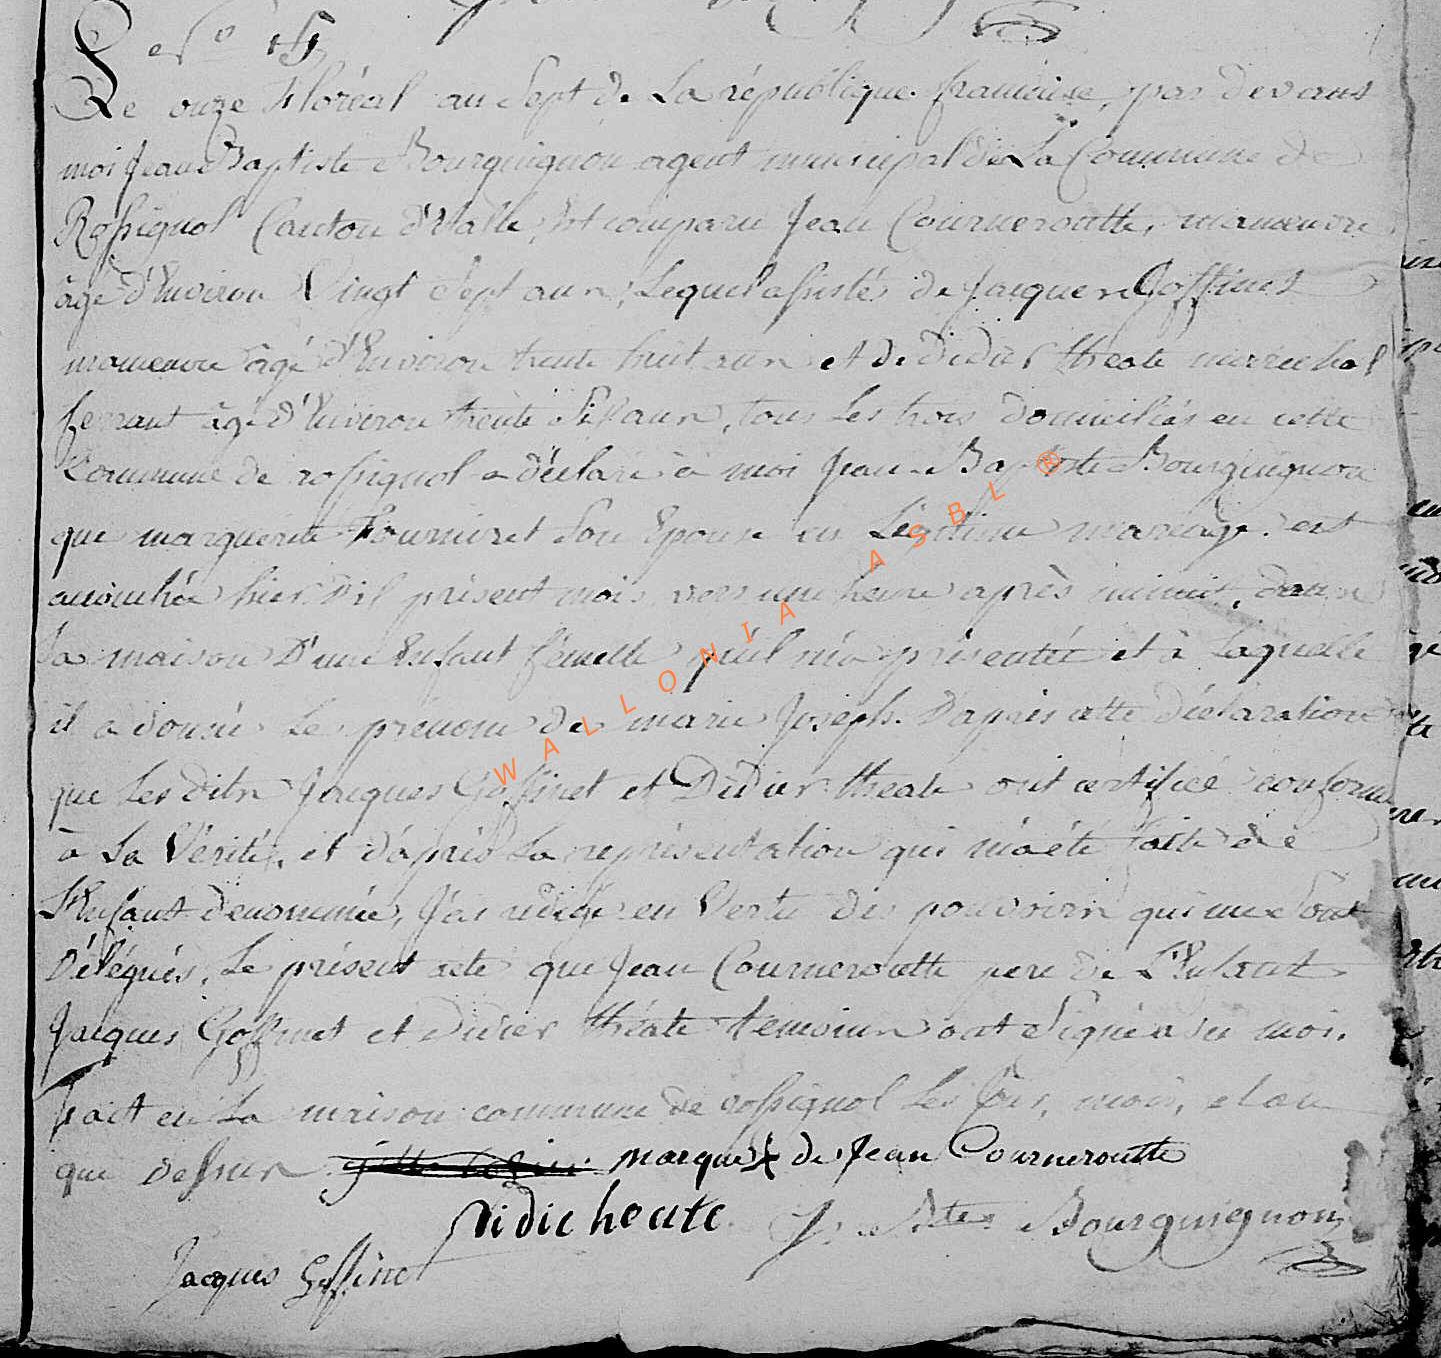 Le onze floréal an Sept de La république francoise, par devant
moi Jean Baptiste Bourguignon agent municipal de La Commune de
Rossignol Canton d'Etalle, est comparu Jean Courneroutte, manoeuvre
âgé d'Environ Vingt Sept ans, Lequel assistés de Jacques Goffinet
manoeuvre âgé d'Environ trente huit ans et de didier théate maréchal
ferrant âgé d'Environ trente Six ans, tous les trois domiciliés en cette
Commune de rossignol a déclaré à moi Jean Baptiste Bourguignon
que marguerite fourniret Son Epouse en Légitime mariage est
accouchée hier dil présent mois vers une heure après minuit, dans
sa maison D'une Enfant fémelle qu'il m'a présentée et à Laquelle
il a donné Le prénom de marie Joseph. D'après cette déclaration
que Les dits Jacques Goffinet et Didier théate ont certifiée conforme
à La Vérité, et d'après La représentation qui m'a été faite de
L'Enfant dénommée, J'ai rédigé en Vertu des pouvoirs qui me Sont
Délégués, Le présent acte que Jean Courneroutte pere de L'Enfant
Jacques Goffinet et didier théate temoins ont Signés avec moi.
fait en La maison commune de rossignol Les Jour, mois, et an
que dessus marque X de Jean Courneroutte
didie heate J. Bte Bourguignon
Jacques Goffinet
WALLONIA ASBL ®